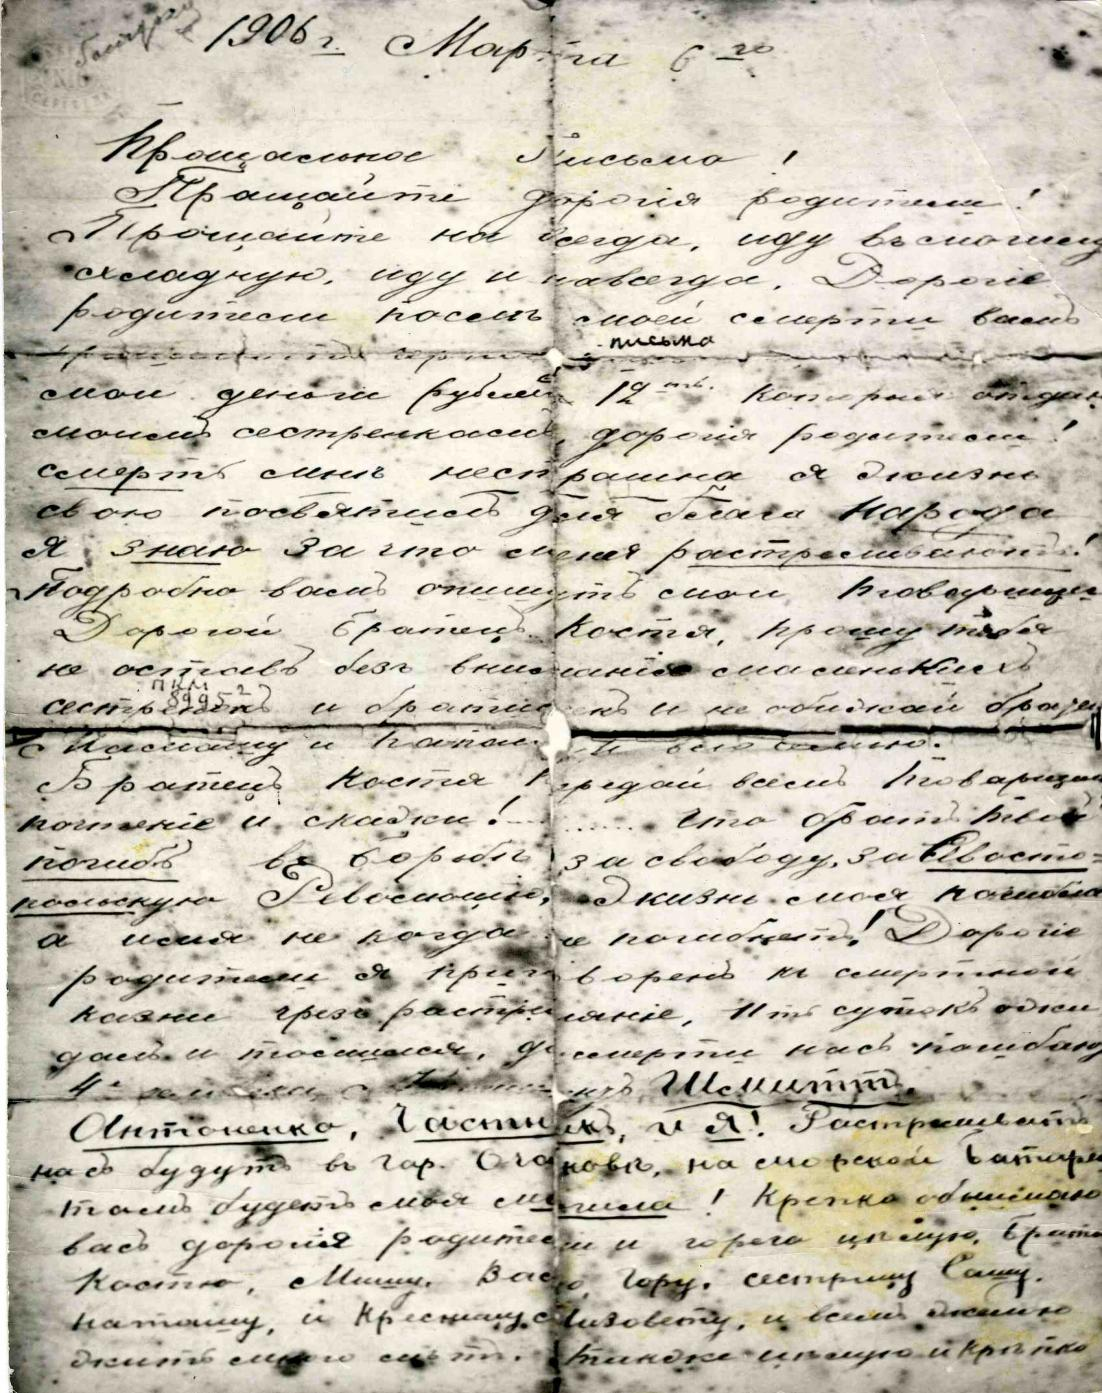 1906 г. Марта 6 го
Прощальное Письмо!
Пращайте дорогія родители!
Прощайте на всегда, иду въ могилу
холадную, иду и навсегда. Дорогіе
родители послѣ моей смерти вамъ
письмо
мои деньги рублей 12 ть. которыя отдай
моимъ сестренкамъ, дорогія родители!
смерть мнѣ нестрашна я жизнь
свою посвятилъ для блага народа
я знаю за что меня растреливаютъ!
Подробно вамъ опишутъ мои товарищи
Дорогой братецъ Костя, прошу тебя
не оставь безъ вниманія маленькихъ
ПКМ
8995 2
сестренкъ и братишекъ и не обижай братецъ
Мамашу и папашу и всю семью.
Братецъ Костя передай всемъ товарищам
почтеніе и скажи! что братъ твой
погибъ въ борьбѣ за свободу, за Севасто=
польскую Революцію, Жизнь моя погибла
а имя не когда не погибнетъ! Дорогіе
родители я приговоренъ къ смертной
казни чрезъ растреляніе, 11 ть сутокъ ожи
далъ и томился, до смерти насъ погибаю
4 Шмиттъ,
Антоненко, Частникъ, и я! Растреливать
насъ будутъ въ гор. Очаковѣ, на морской батареѣ
тамъ будетъ моя могила! Крепко обнимаю
васъ дорогія родители и горячо цѣлую, Брата
Костю, Мишу, Васю, Гору, сестрицу Сашу,
наташу, и Крестную Лизовету, и всемъ желаю
жить много лѣтъ. также цѣлую и крѣпко